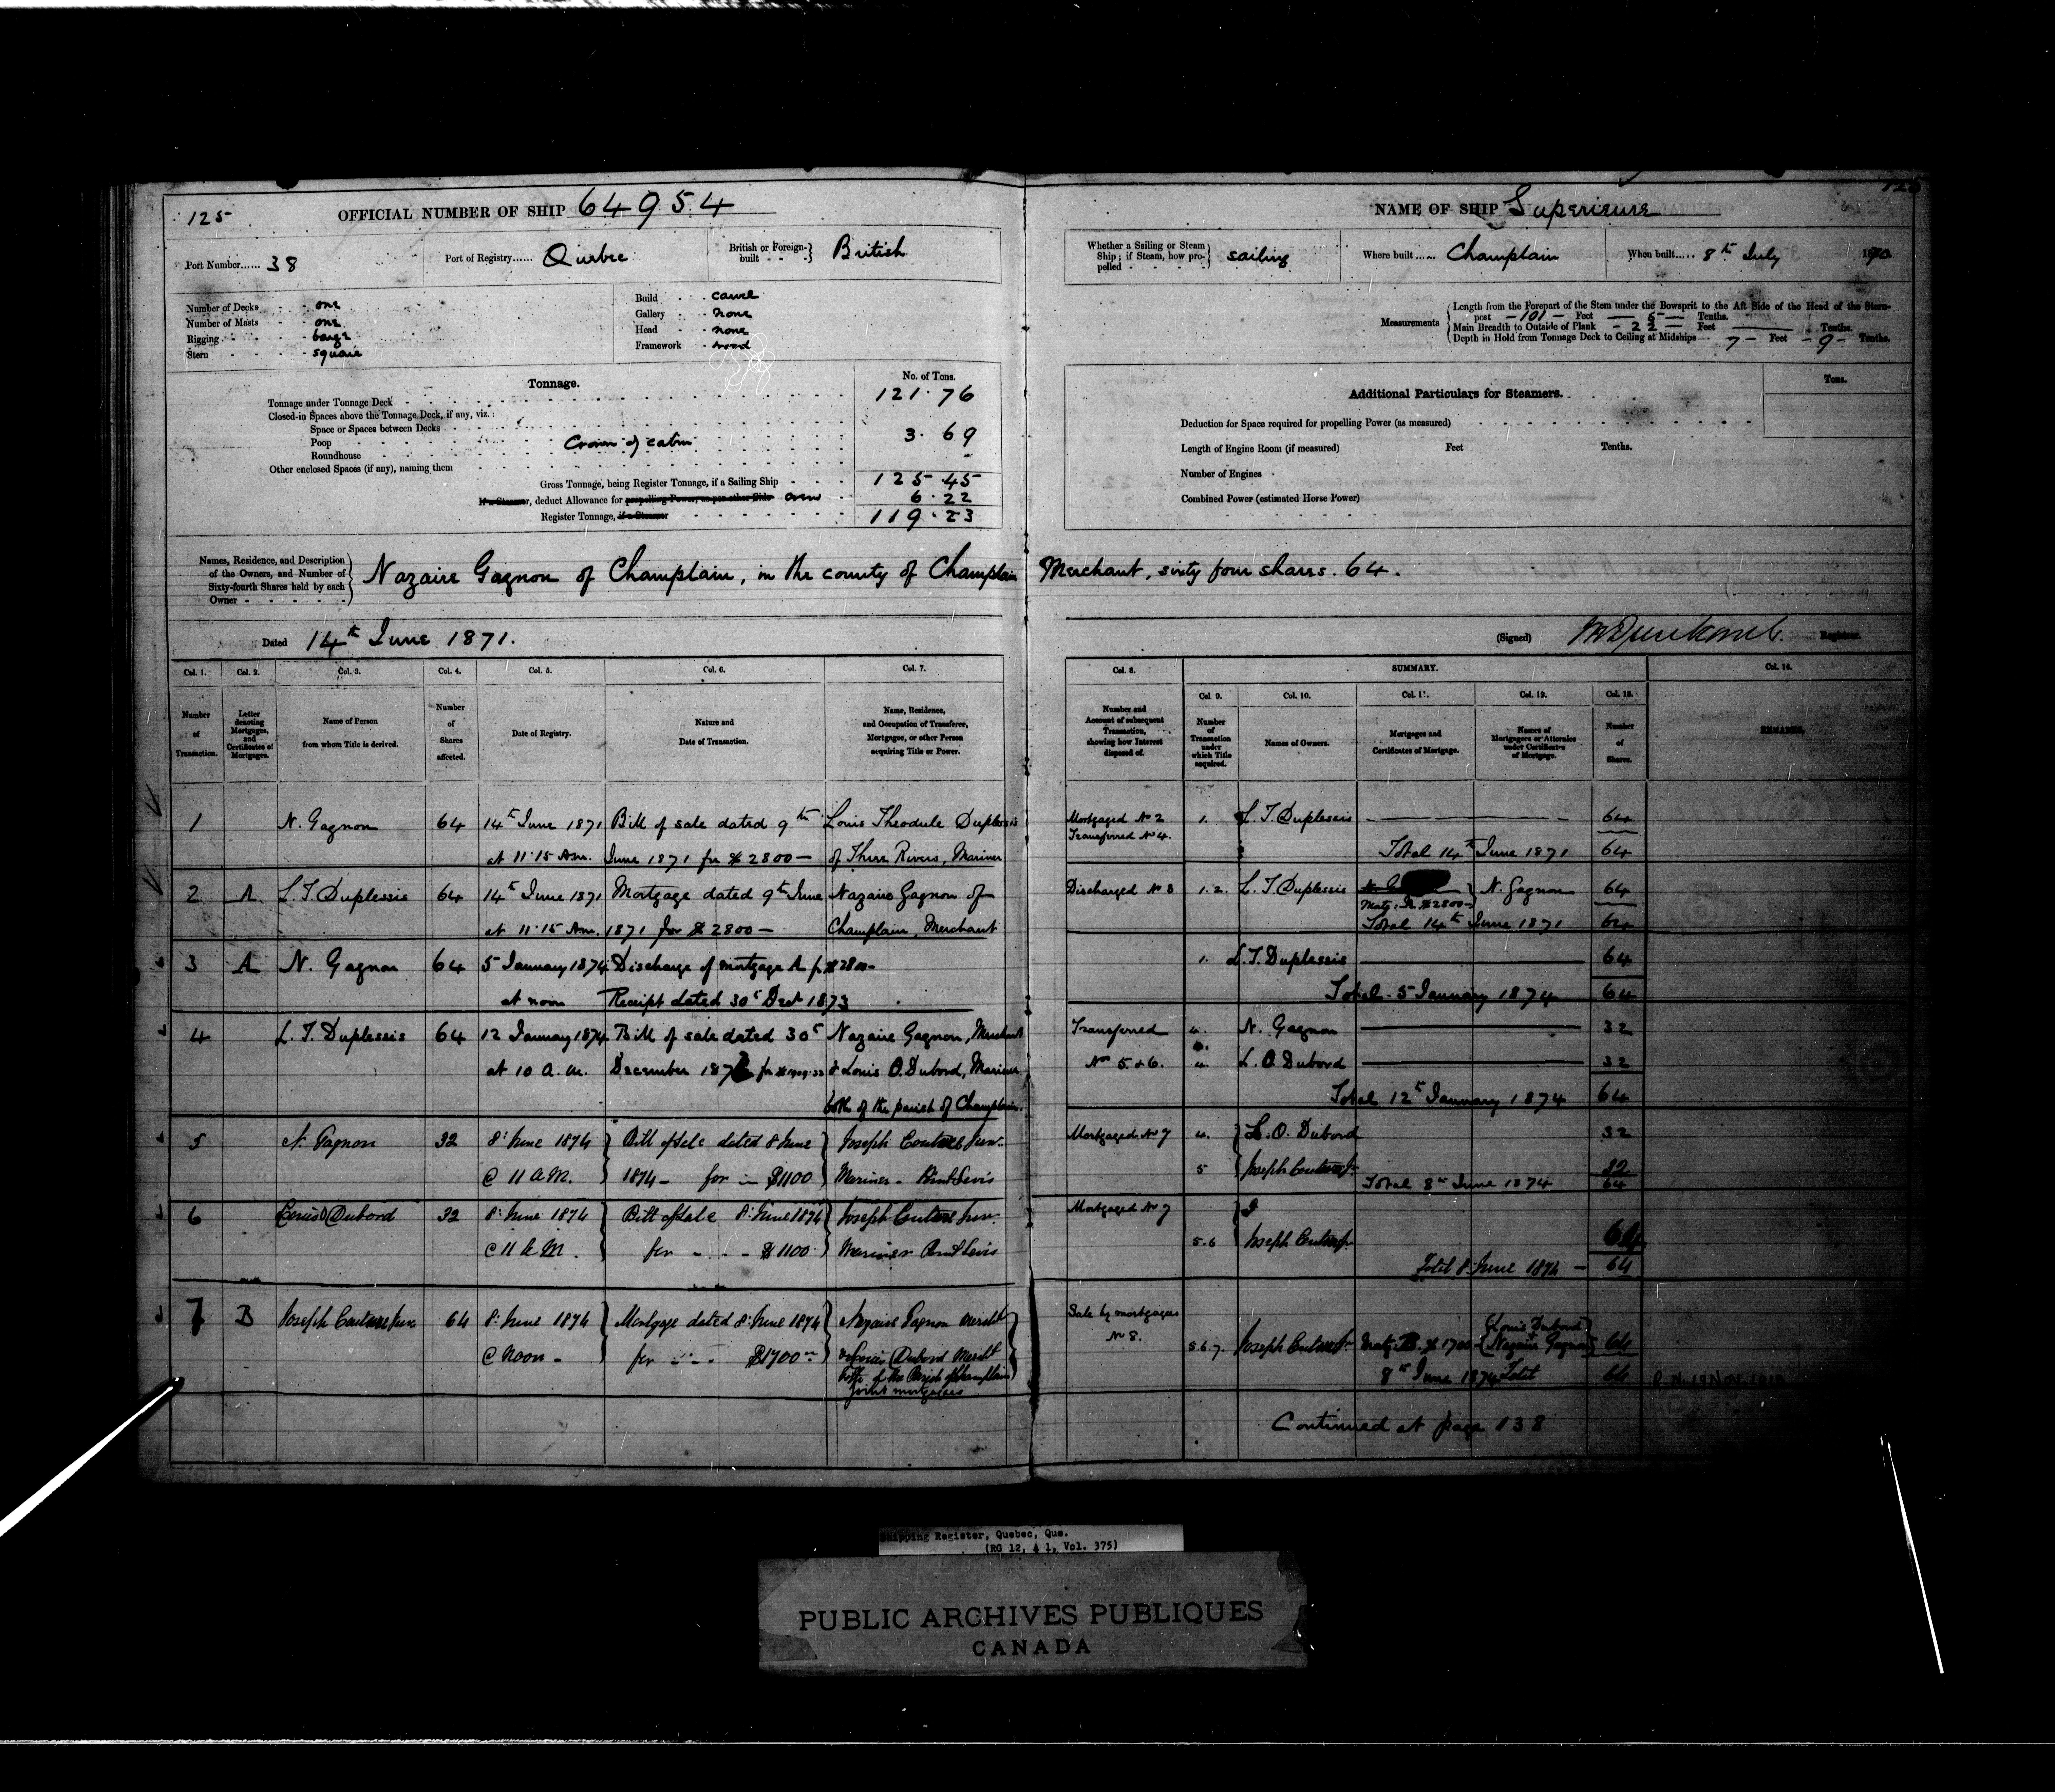 125
OFFICIAL NUMBER OF SHIP 64954
Port Number...... 38
Port of Registry...... Quebec
British or Foreign-built - - British
Number of Decks - - one
Number of Masts - - one
Rigging - - - barge
Stern - - - - square
Build - - carvel
Gallery - - none
Head - - none
Framework - wood
Tonnage.
No. of Tons.
Tonnage under Tonnage Deck 121.76
Closed-in Spaces above the Tonnage Deck, if any, viz.:
Space or Spaces between Decks
Poop Crown of cabin 3.69
Roundhouse
Other enclosed Spaces (if any), naming them
Gross Tonnage, being Register Tonnage, if a Sailing Ship 125.45
If a Steamer, deduct Allowance for propelling Power, as per other Side crew 6.22
Register Tonnage, if a Steamer 119.23
NAME OF SHIP Superieure
Whether a Sailing or Steam Ship; if Steam, how propelled - sailing
Where built...... Champlain
When built..... 8th July 1870
Measurements
Length from the Forepart of the Stem under the Bowsprit to the Aft Side of the Head of the Stern-
post - 101 - Feet - 5 - Tenths.
Main Breadth to Outside of Plank - 22 - Feet Tenths.
Depth in Hold from Tonnage Deck to Ceiling at Midships 7 - Feet - 9 - Tenths.
Additional Particulars for Steamers.
Tons.
Deduction for Space required for propelling Power (as measured)
Length of Engine Room (if measured) Feet Tenths.
Number of Engines
Combined Power (estimated Horse Power)
Names, Residence, and Description
of the Owners, and Number of
Sixty-fourth Shares held by each
Owner
Nazaire Gagnon of Champlain, in the county of Champlain Merchant, sixty four shares. 64.
Dated 14th June 1871.
(Signed) Registrar.
Col. 1. Col. 2. Col. 3. Col. 4. Col. 5. Col. 6. Col. 7.
Number of Transaction.
Letter denoting Mortgages, and Certificates of Mortgages.
Name of Person from whom Title is derived.
Number of Shares affected.
Date of Registry.
Nature and Date of Transaction.
Name, Residence, and Occupation of Transferee, Mortgagee, or other Person acquiring Title or Power.
Col. 8. SUMMARY. Col. 14.
Col 9. Col. 10. Col. 11. Col. 12. Col. 13.
Number and Account of subsequent Transaction, showing how Interest disposed of.
Number of Transaction under which Title acquired.
Names of Owners.
Mortgages and Certificates of Mortgage.
Names of Mortgagees or Attornies under Certificates of Mortgage.
Number of Shares.
REMARKS.
1 N. Gagnon 64 14th June 1871 Bill of sale dated 9th Louis Theodule Duplessis
at 11.15 Am. June 1871 for $2800 - of Three Rivers, Mariner
2 A. L. T. Duplessis 64 14th June 1871 Mortgage dated 9th June Nazaire Gagnon of
at 11.15 Am. 1871 for $2800 - Champlain, Merchant
3 A N. Gagnon 64 5 January 1874 Discharge of mortgage A for $2800 -
at noon Receipt dated 30t Decr 1873
4 L. T. Duplessis 64 12 January 1874 Bill of sale dated 30t Nazaire Gagnon, Merchant
at 10 a.m. December 1873 for & Louis O. Dubord, Mariner
both of the parish of Champlain.
5 N. Gagnon 32 8: June 1874 Bill of Sale dated 8 June Joseph Couture Junr.
@ 11 A.M. 1874 - for - $1100 Mariner - Point Levis
6 Louis O Dubord 32 8: June 1874 Bill of Sale 8: June 1874 Joseph Couture Junr.
@ 11 A M. for - - - $1100 Mariner Point Levis
7 B Joseph Couture Junr 64 8: June 1874 Mortgage dated 8: June 1874 Nazaire Gagnon Mercht
@ Noon - for - - - $1700 & Louis O Dubord Mercht
both of the Parish of Champlain
joint mortgagees
Mortgaged No 2 1. L. T. Duplessis 64
Transferred No 4.
Total 14th June 1871 64
Discharged No 3 1.2. L. T. Duplessis N. Gagnon 64
Mortg: A $2800 -
Total 14th June 1871 64
1. L. T. Duplessis 64
Total - 5 January 1874 64
Transferred 4. N. Gagnon 32
Nos 5 & 6. 4. L. O. Dubord 32
Total 12t January 1874 64
Mortgaged No 7 4. L. O. Dubord 32
5 Joseph Couture Jr 32
Total 8th June 1874 64
Mortgaged No 7
5.6 Joseph Couture Jr 64
Total 8: June 1874 - 64
Sale by mortgagees
No 8.
5.6.7. Joseph Couture Jr Mortg: B. $1700 - Louis Dubord + Nazaire Gagnon 64
8th June 1874 Total 64
Continued at page 138
Shipping Register, Quebec, Que.
(RG 12, A 1, Vol. 375)
PUBLIC ARCHIVES PUBLIQUES
CANADA